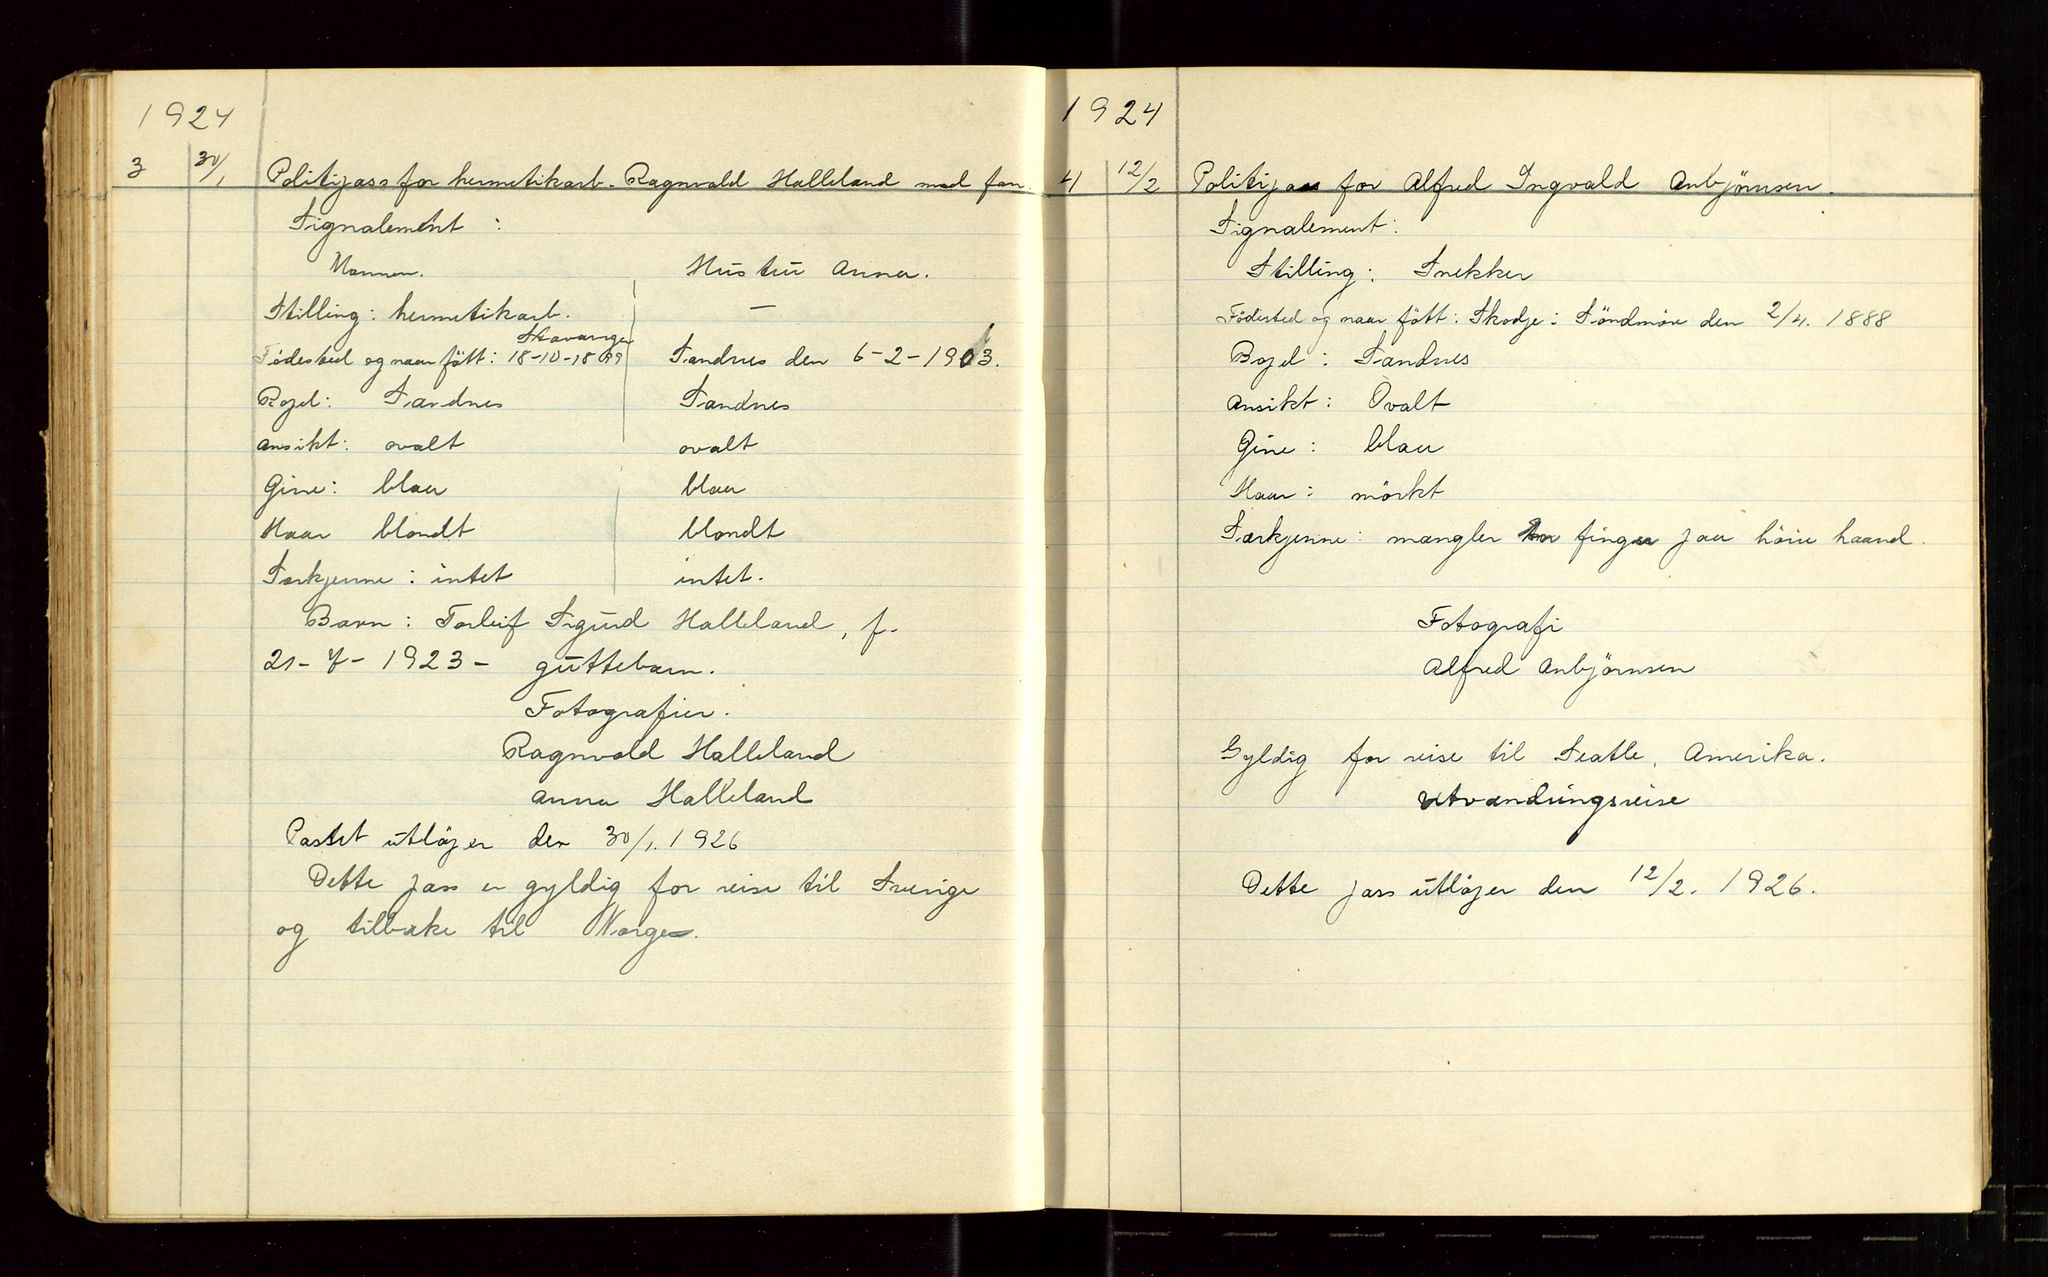 1924
3 30/1 Politipass for hermetikarb. Ragnvald Halleland med fam.
Signalement :
Mannen. Hustru Anna.
Stilling : hermetikarb. —
Stavanger
Födested og naar fött : 18-10-1899 Sandnes den 6-2-1903.
Bopel : Sandnes Sandnes
Ansikt : ovalt ovalt
Öine : blaa blaa
Haar blondt blondt
Særkjenne : intet intet.
Barn : Torleif Sigurd Halleland, f.
21-7-1923 - guttebarn.
Fotografier.
Ragnvald Halleland
Anna Halleland
Passet utlöper den 30/1. 1926
Dette pass er gyldig for reise til Sverige
og tilbake til Norge.
1924
4 12/2 Politipass for Alfred Ingvald Anbjörnsen.
Signalement :
Stilling : Snekker
Födested og naar fött : Skodje : Söndmöre den 2/4. 1888
Bopel : Sandnes
Ansikt : Ovalt
Öine : blaa
Haar : mörkt
Særkjenne : mangler en finger paa höire haand.
Fotografi
Alfred Anbjörnsen
Gyldig for reise til Seatle, Amerika.
utvandringsreise
Dette pass utlöper den 12/2. 1926.